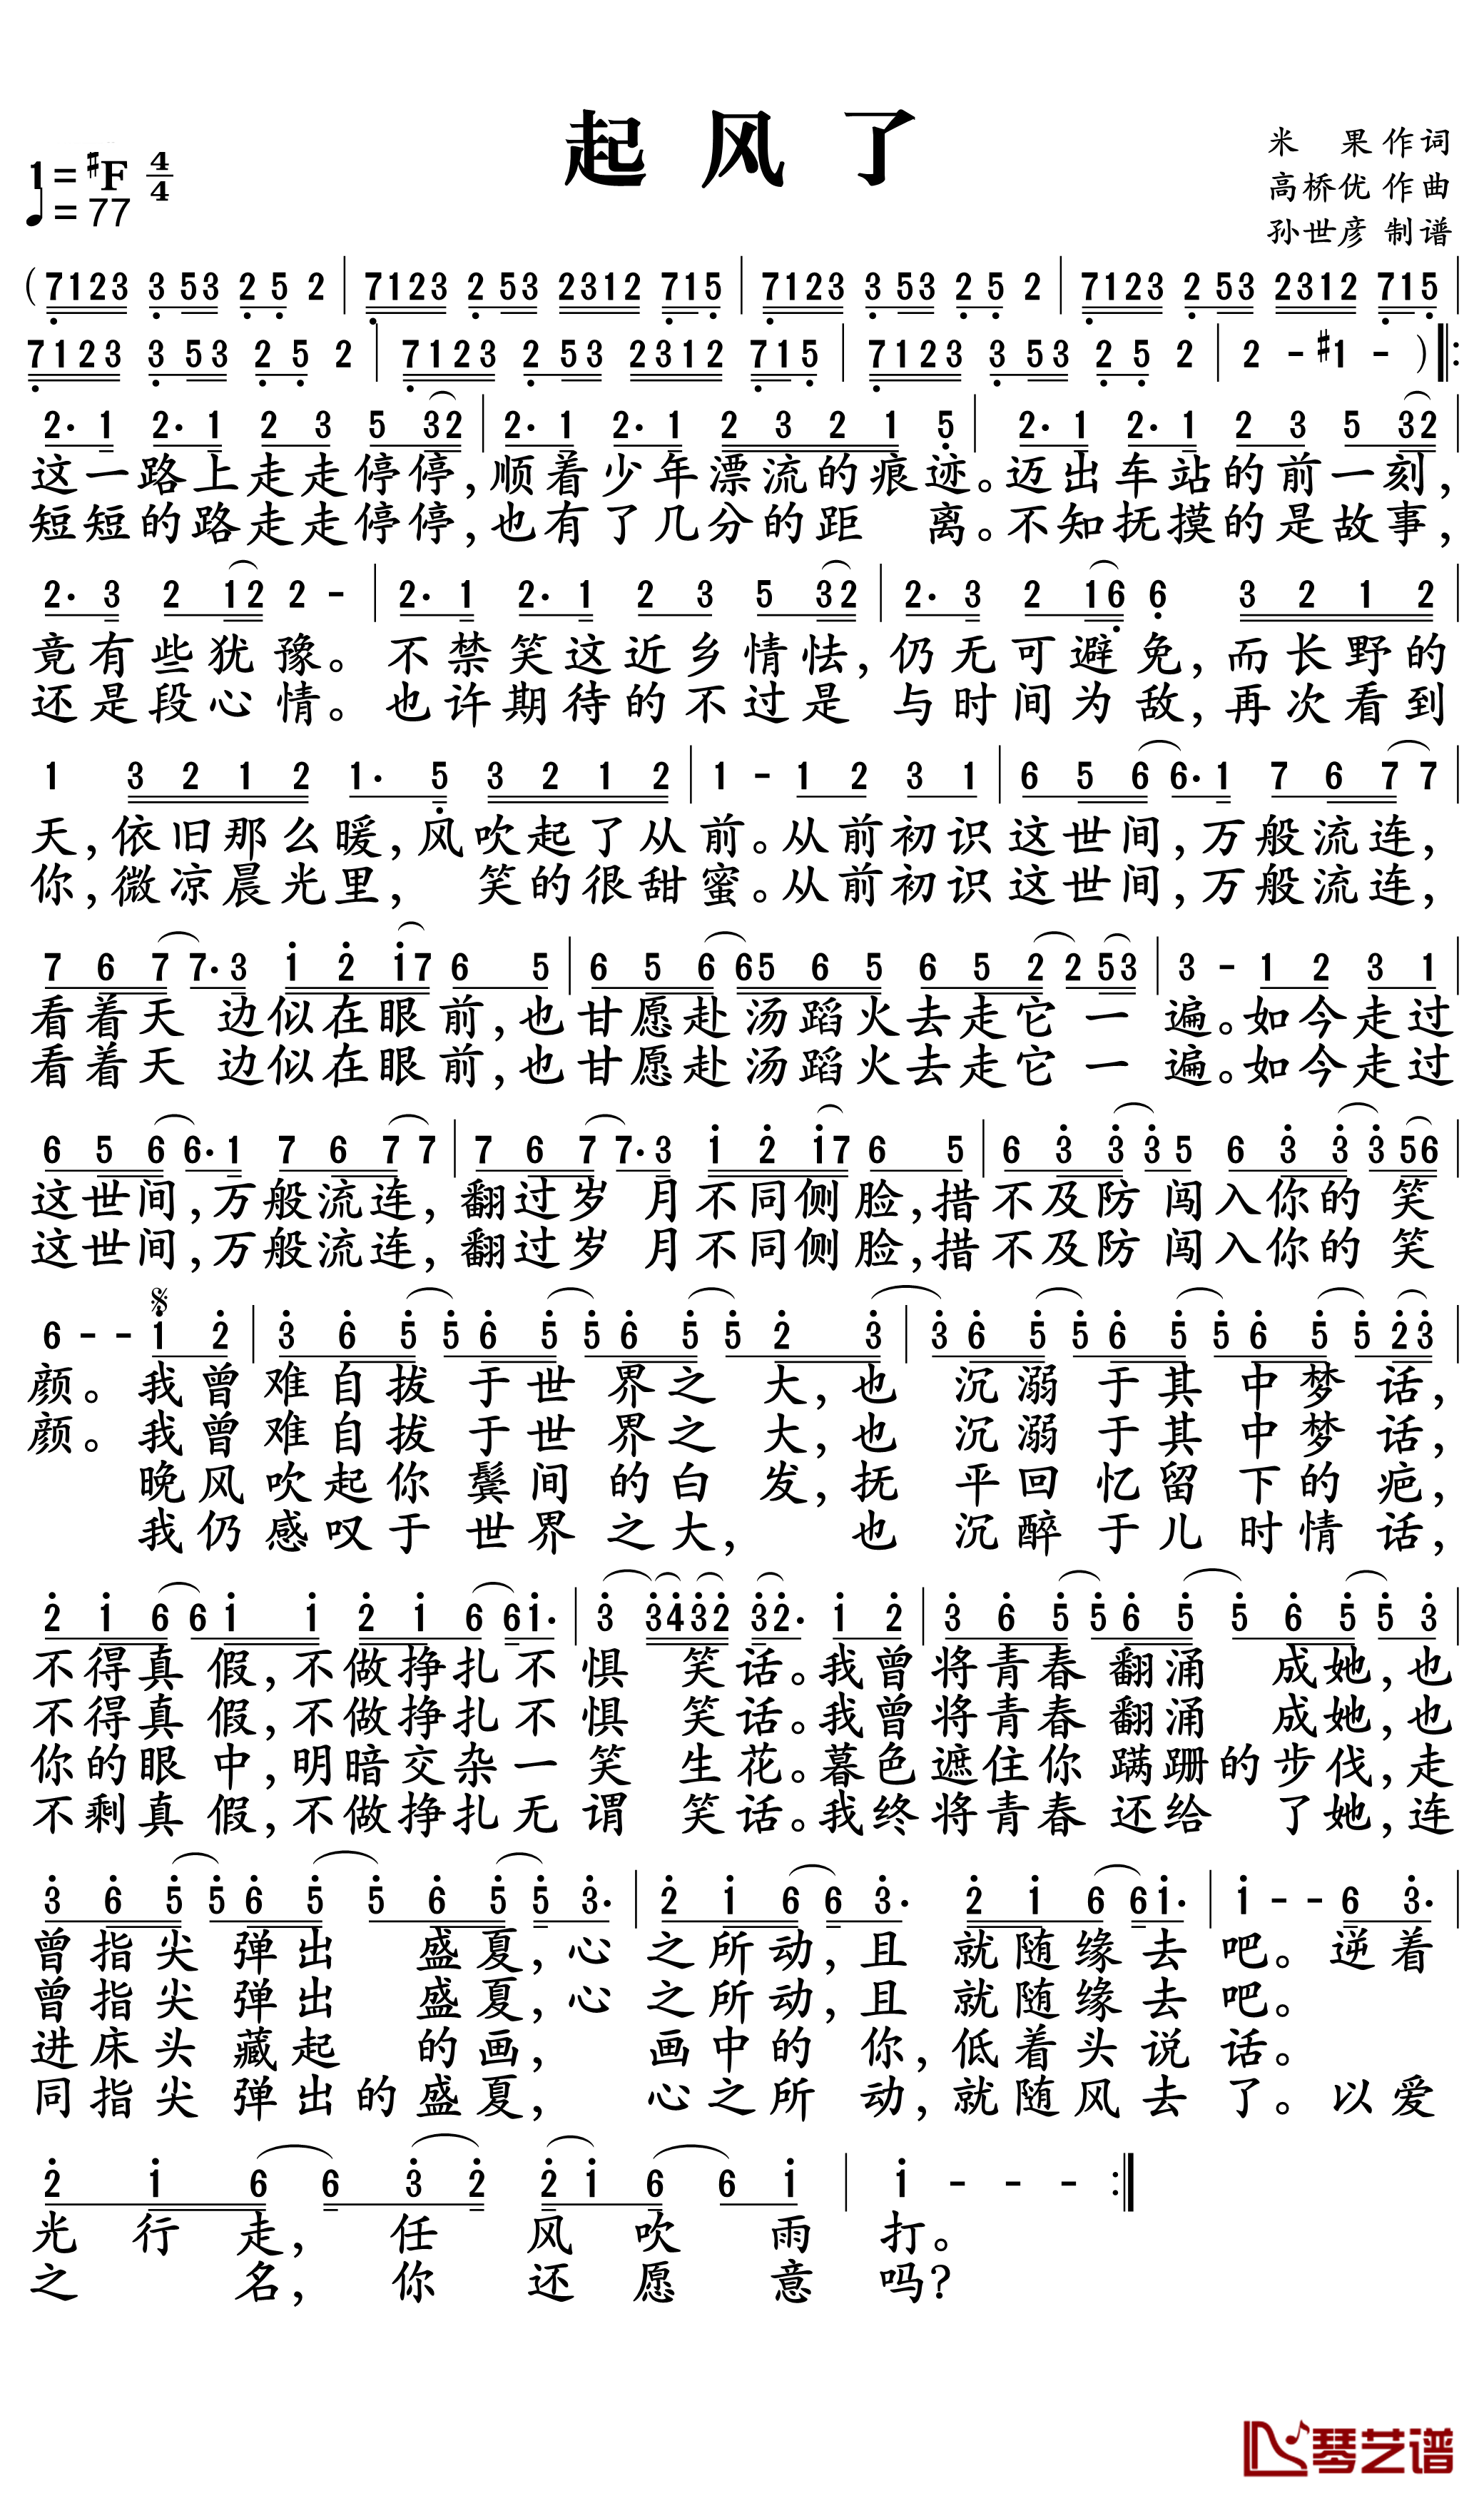 起风了
1=#F 4/4
♩=77
米 果作词
高桥优 作曲
孙世彦 制谱
(7123 3 53 2 5 2 | 7123 2 53 2312 71 5 | 7123 3 53 2 5 2 | 7123 2 53 2312 71 5 |
7123 3 53 2 5 2 | 7123 2 53 2312 71 5 | 7123 3 53 2 5 2 | 2 - #1 - ) ‖:
2· 1 2· 1 2 3 5 32 | 2· 1 2· 1 2 3 2 1 5 | 2· 1 2· 1 2 3 5 32 |
这一路上走走停停,顺着少年漂流的痕迹。迈出车站的前一刻,
短短的路走走停停,也有了几分的距 离。不知抚摸的是故事,
2· 3 2 12 2 - | 2· 1 2· 1 2 3 5 32 | 2· 3 2 16 6 3 2 1 2 |
竟有些犹豫。不禁笑这近乡情怯,仍无可避免,而长野的
还是段心情。也许期待的不过是 与时间为敌,再次看到
1 3 2 1 2 1· 5 3 2 1 2 | 1 - 1 2 3 1 | 6 5 6 6· 1 7 6 7 7 |
天,依旧那么暖,风吹起了从前。从前初识这世间,万般流连,
你,微凉晨光里, 笑的很甜蜜。从前初识这世间,万般流连,
7 6 7 7· 3 1 2 17 6 5 | 6 5 6 65 6 5 6 5 2 2 53 | 3 - 1 2 3 1 |
看着天 边似在眼前,也甘愿赴汤蹈火去走它一 遍。如今走过
看着天 边似在眼前,也甘愿赴汤蹈火去走它一 遍。如今走过
6 5 6 6· 1 7 6 7 7 | 7 6 7 7· 3 1 2 17 6 5 | 6 3 3 3 5 6 3 3 3 56 |
这世间,万般流连,翻过岁 月不同侧脸,措不及防 闯入你的 笑
这世间,万般流连,翻过岁 月不同侧脸,措不及防 闯入你的 笑
6 - - 1 2 | 3 6 5 5 6 5 5 6 5 5 2 3 | 3 6 5 5 6 5 5 6 5 5 23 |
颜。我曾难自拔 于世 界之 大,也 沉溺 于其 中梦 话,
颜。我曾难自拔 于世 界之 大,也 沉溺 于其 中梦 话,
晚风吹起你 鬓间 的白 发,抚 平回 忆留 下的 疤,
我仍感叹于 世界 之大, 也 沉醉 于儿 时情 话,
2 1 6 6 1 1 2 1 6 6 1· | 3 34 32 3 2· 1 2 | 3 6 5 5 6 5 5 6 5 5 3 |
不得真 假,不做挣扎不 惧 笑话。我曾将青春翻涌 成她,也
不得真 假,不做挣扎不 惧 笑话。我曾将青春翻涌 成她,也
你的眼 中,明暗交杂一 笑 生花。暮色遮住你 蹒跚的步伐,走
不剩真 假,不做挣扎无 谓 笑话。我终将青春还给 了她,连
3 6 5 5 6 5 5 6 5 5 3· | 2 1 6 6 3· 2 1 6 6 1· | 1 - - 6 3· |
曾指尖 弹出 盛夏,心 之所动,且 就随缘去 吧。逆着
曾指尖 弹出 盛夏,心 之所动,且 就随缘去 吧。
进床头 藏起 的画, 画中的 你,低着头说 话。
同指尖 弹出的盛夏, 心之所 动,就随风去 了。以爱
2 1 6 6 3 2 2 1 6 6 1 | 1 - - - :‖
光行走, 任 风 吹 雨 打。
之 名, 你 还 愿 意 吗?
琴艺谱